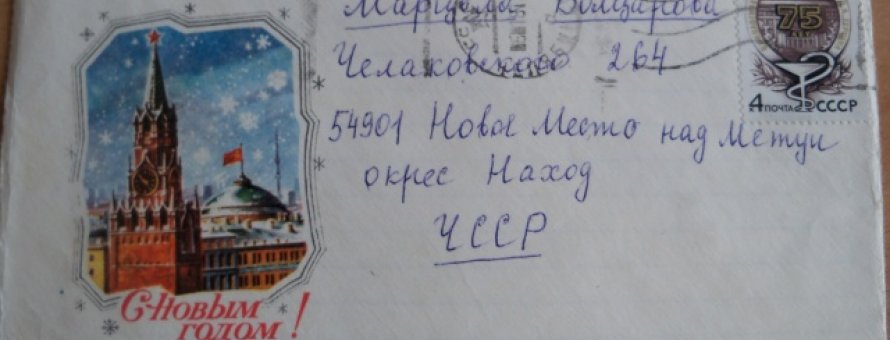 75
ЛЕТ
4 ПОЧТА СССР
Челаковского 264
54901 Новое Место над Метуи
окрес Наход
ЧССР
С-Новым
годом!